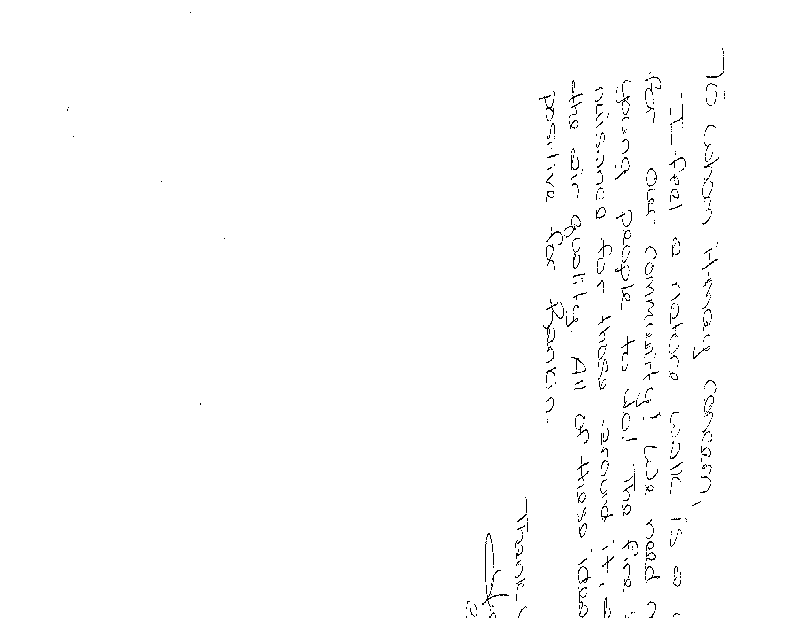 To whom it may concern,
I feel a nature walk is a
for our community! We need
young people to do! The fire
nuisance for those around it,
the air quality. All of these ideas
positive for Rankin.
Thank